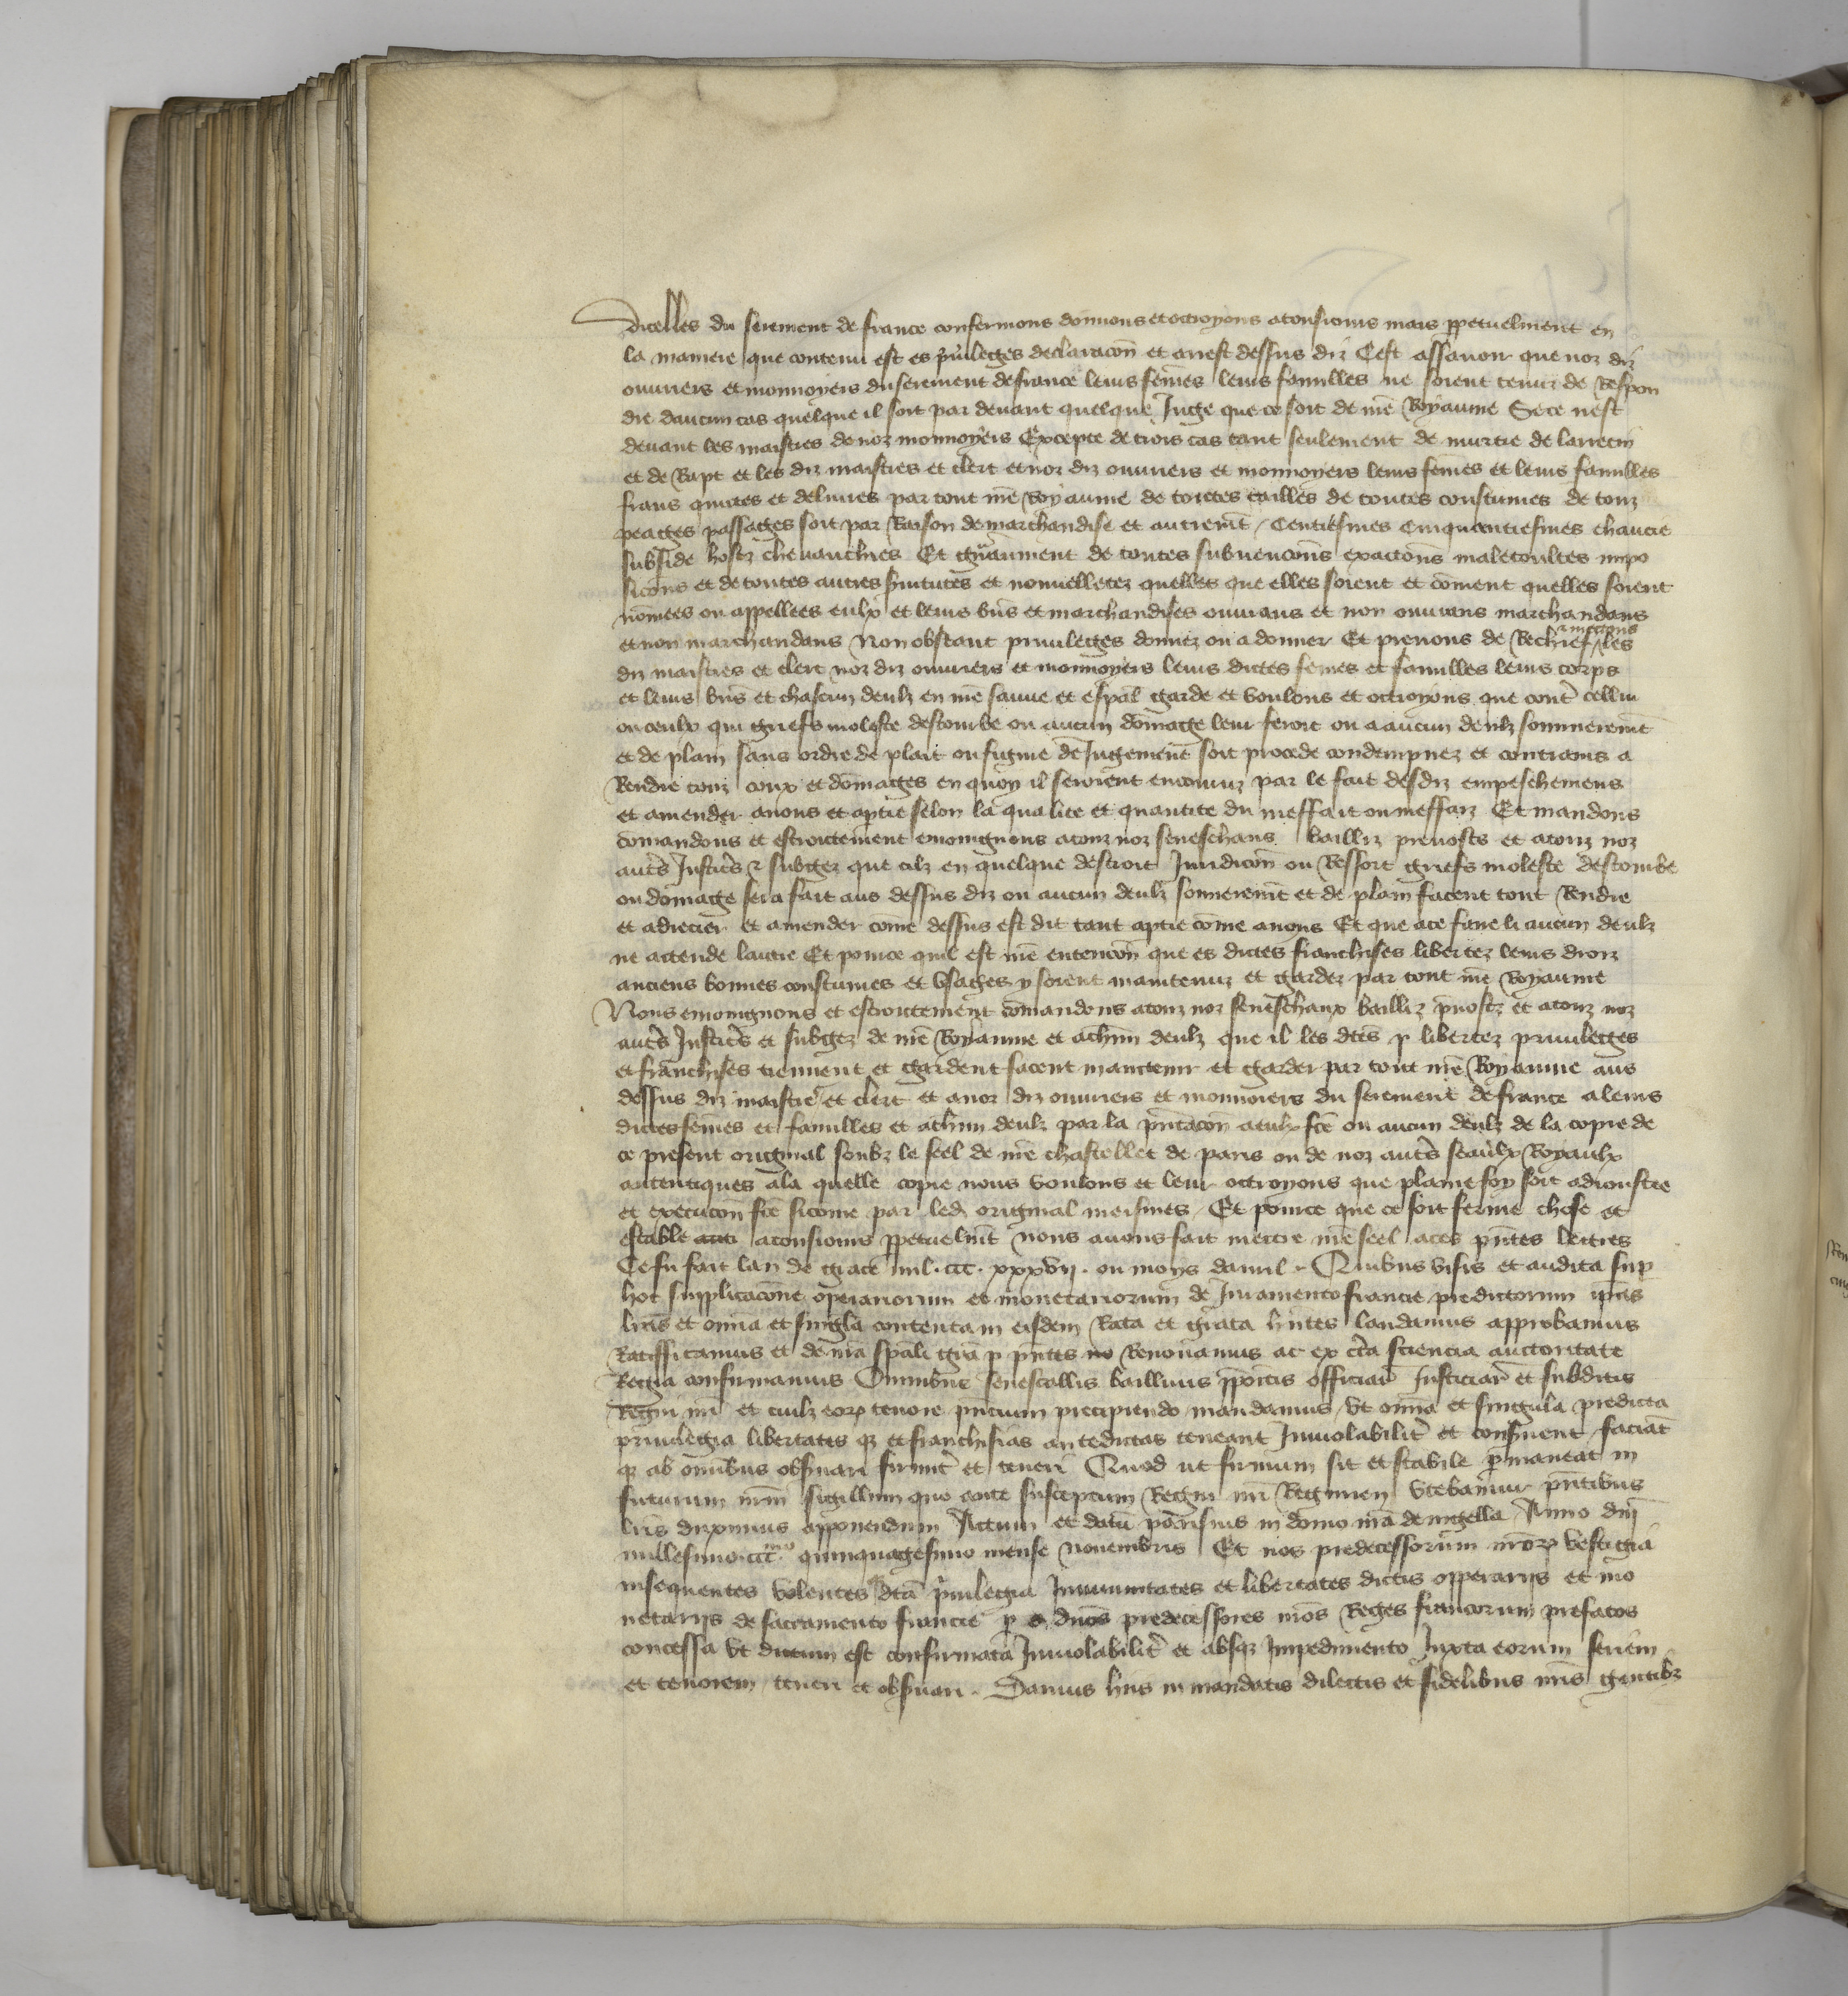 dicelles du serement de france confermons donnons et octroyons atousiours mais ppetuelment en
la maniere que contenu est es privileges declaracōn et arrest dessus diz Cest assavoir que noz diz
ouvriers et monnoyers du serement de france leurs fēmes leurs familles ne soient tenuz de Respon
dre daucun cas quelque il soit par devant quelque Juge que ce soit de nrē Royaume Se ce nest
devant les maistres de noz monnoyers Excepte de trois cas tant seulement de murtre de larrecin
et de Rapt et les diz maistres et clerc et noz diz ouvriers et monnoyers leurs fēmes et leurs familles
francs quittes et delivres par tout nrē Royaume de toutes tailles de toutes coustumes de touz
peages passages soit par Raison de marchandise et autremēt / Centiesmes Cinquantiesmes chaucie
subside hostz chevauchees Et gnāument de toutes subvencōns exactōns maletoultes impo
sicōns et de toutes autres s̄vitutes et nouvelletez quelles que elles soient et cōment quelles soient
nōmees ou appellees eulx et leurs biēs et marchandises ouvrans et non ouvrans marchandans
et non marchandans Non obstant privileges donnez ou a donner Et prenons de Rechief / & mectons les
diz maistres et clerc noz diz ouvriers et monnoyers leurs dictes fēmes et familles leurs corps
et leurs biēs et chascun deulz en nrē sauve et esp̄al garde et voulons et octroyons que cont̄ cellui
ou ceulx qui griefs moleste destourbe ou aucun dōmage leur feroit ou a aucun deulz sommieremēt
et de plain sans ordre de plait ou figure de Jugement soit procede condempnez et contrains a
Rendre touz coux et dōmages en quoy il seroient encouruz par le fait desdiz empeschemens
et amender a nous et aptie selon la qualite et quantite du meffait ou meffaiz Et mandons
cōmandons et estroictement enioignons a touz noz seneschaus bailliz prevosts et a touz noz
autrēs Justicēs & subgez que cilz en quelque destroit Juridicōn ou Ressort griefs moleste destourbe
ou dōmage sera fait aus dessus diz ou aucun deulz sōmieremēt et de plain facent tout Rendre
et adrecier et amender cōme dessus est dit tant aptie cōme a nous Et que a ce faire li aucun deulz
ne attende lautre Et pour ce quil est nrē entencōn que es dictes franchises libertez leurs droiz
anciens bonnes coustumes et Usages y soient maintenuz et gardez par tout nrē Royaume
Nous enioignons et estroictement cōmandons a touz noz seneschaux bailliz p̄vostz et a touz noz
autrēs Justicēs et subgez de nrē Royaume et achūn deulz que il les dctēs libertez privileges
et franchises tiennent et gardent facent maintenir et garder par tout nrē Royaume aus
dessus diz maistre et clerc et a noz diz ouvriers et monnoiers du serement de france a leurs
dictes fēmes et familles et achūn deulz par la p̄ntacōn a eulx fcē ou aucun deulz de la copie de
ce present original soubz le seel de nrē chastellet de paris ou de noz autrēs seaulx Royaulx
autentiques a la quelle copie nous voulons et leur octroyons que plaine foy soit adioustee
et execucōn fcē sicōme par led original meismes / Et pour ce que ce soit ferme chose et
estable atousiours ppetuelmēt nous avons fait mettre nrē seel a ces p̄ntes lettres
Ce fu fait lan de grace mil . ccc . xxxvij . ou moys davril . Quibus visis et audita sup
hoc supplicacōne operariorum et monetariorum de Juramento francie predictorum ip̄as
lrās et ōmia et singla contenta in eisdem Rata et grata hn̄tes laudamus approbamus
Ratifficamus et de nrā sp̄ali grā p p̄ntes Renovamus ac ex crtā sciencia auctoritate
Regia confirmamus Omnibus senescallis baillivis pp̄oītis officiar̄ Justiciar̄ et subditis
Regni nrī et cuilz eorꝝ tenore p̄ncium precipiendo mandamus / Ut ōmia et singula predicta
privilegia libertates qꝫ et franchisias antedictas teneant Inviolabilit̄ et cons̄vent faciāt
qꝫ ab ōmibus obs̄vari firmit̄ et teneri Quod ut firmum sit et stabile p̄maneat in
futurum nrm̄ sigillum quo ante susceptum Regni nrī Regimen Utebamur p̄ntibus
lrīs duximus apponendum Actum et datū parisius in domo nrā de nigella Anno dnī
millesimo cccmo quinquagesimo mense novembris Et nos predecessorum nrōrꝝ vestigia
insequentes volentes dctā p̄vilegia Immunitates et libertates dictis opperariis et mo
netariis de sacramento francie p dnōs predecessores nrōs Reges francorum prefatos
concessa Ut dictum est confirmata Inviolabilit̄ et absqꝫ Impedimento Juxta eorum seriem
et tenorem teneri et obs̄vari . Damus hiis in mandatis dilectis et fidelibus nrīs gentibꝫ